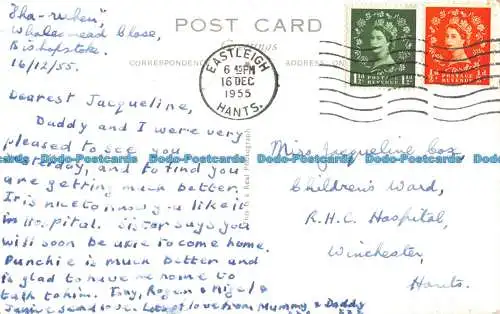 "Sha-ruhen",
Whalesmead Close,
Bishopstoke.
16/12/55.
Dearest Jacqueline,
Daddy and I were very
pleased to see you
yesterday, and to find you
are getting much better.
It is nice to know you like it
in Hospital. Sister says you
will soon be able to come home.
Punchie is much better and
is glad to have me home to
talk to him. Tony, Roger & Nigel &
send love. Lots of love from Mummy & Daddy
POST CARD
CORRESPONDENCE
ADDRESS ON
EASTLEIGH
16 DEC
1955
HANTS.
POSTAGE REVENUE
POSTAGE REVENUE
This is a Real Photograph
Miss Jacqueline Cox
Children's Ward,
R.H.C. Hospital,
Winchester,
Hants.
Dodo-Postcards Dodo-Postcards Dodo-Postcards Dodo-Postcards Dodo-Postcards
Dodo-Postcards Dodo-Postcards Dodo-Postcards Dodo-Postcards Dodo-Postcards